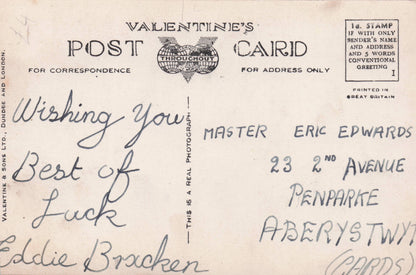 £4
VALENTINE'S
POST CARD
THROUGHOUT
FOR CORRESPONDENCE
FOR ADDRESS ONLY
1d. STAMP
IF WITH ONLY
SENDER'S NAME
AND ADDRESS
AND 5 WORDS
CONVENTIONAL
GREETING
I
PRINTED IN
GREAT BRITAIN
VALENTINE & SONS LTD., DUNDEE AND LONDON.
THIS IS A REAL PHOTOGRAPH
Wishing You
Best of
Luck
Eddie Bracken
MASTER ERIC EDWARDS
23 2ND AVENUE
PENPARKE
ABERYSTWYT
(CARDS)